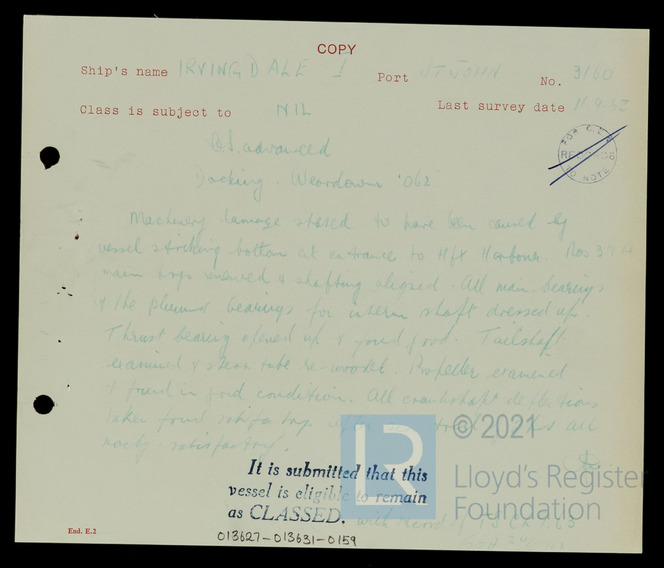 COPY
Ship's name IRVINGDALE I Port ST JOHN No. 3160
Class is subject to NIL Last survey date 11.9.62
advanced
Docking. Weardown '062
Machinery damage stated to have been caused by
vessel striking bottom at entrance to Hfx Harbour. Nos 3 7 &
main renewed & shafting aligned. All main bearings
& the plummer bearings for interm shaft dressed up.
Thrust bearing opened up & found good. Tailshaft
examined & stern tube re-wooded. Propeller examined
& found in good condition. All crankshaft deflections
taken found satisfactory after
satisfactory.
It is submitted that this
vessel is eligible to remain
as CLASSED. with record of TS CR 9.63
End. E.2
013627-013631-0159
© 2021
LR
Lloyd's Register
Foundation